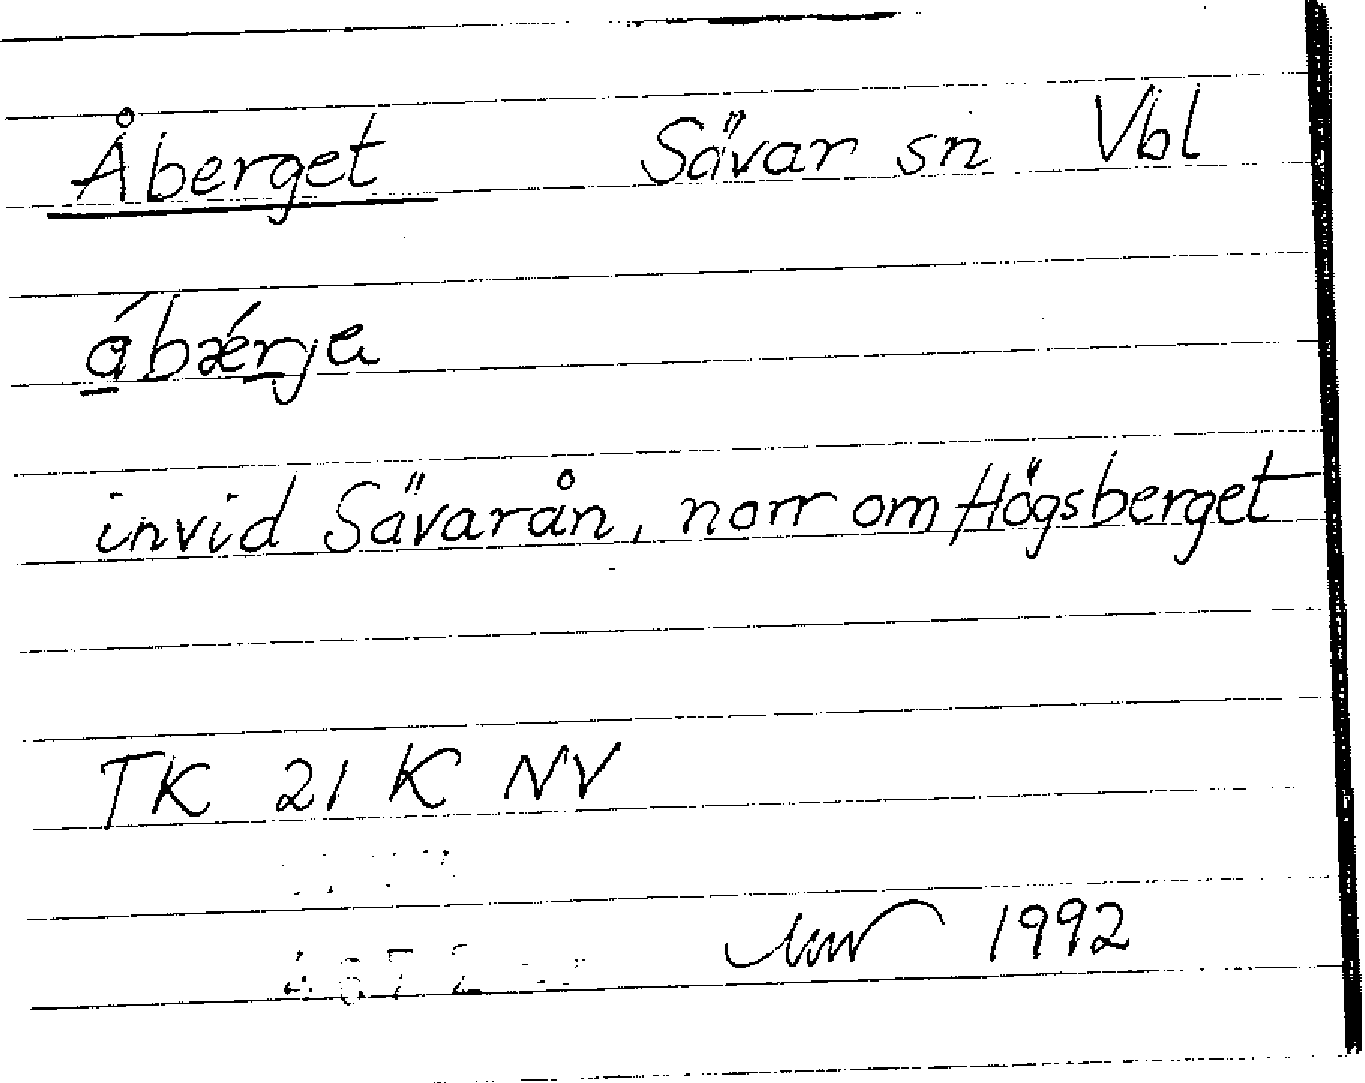 Åberget Sävar sn Vbl
á̲bǽr̲je
invid Sävarån, norr om Högsberget
TK 21 K NV
1992